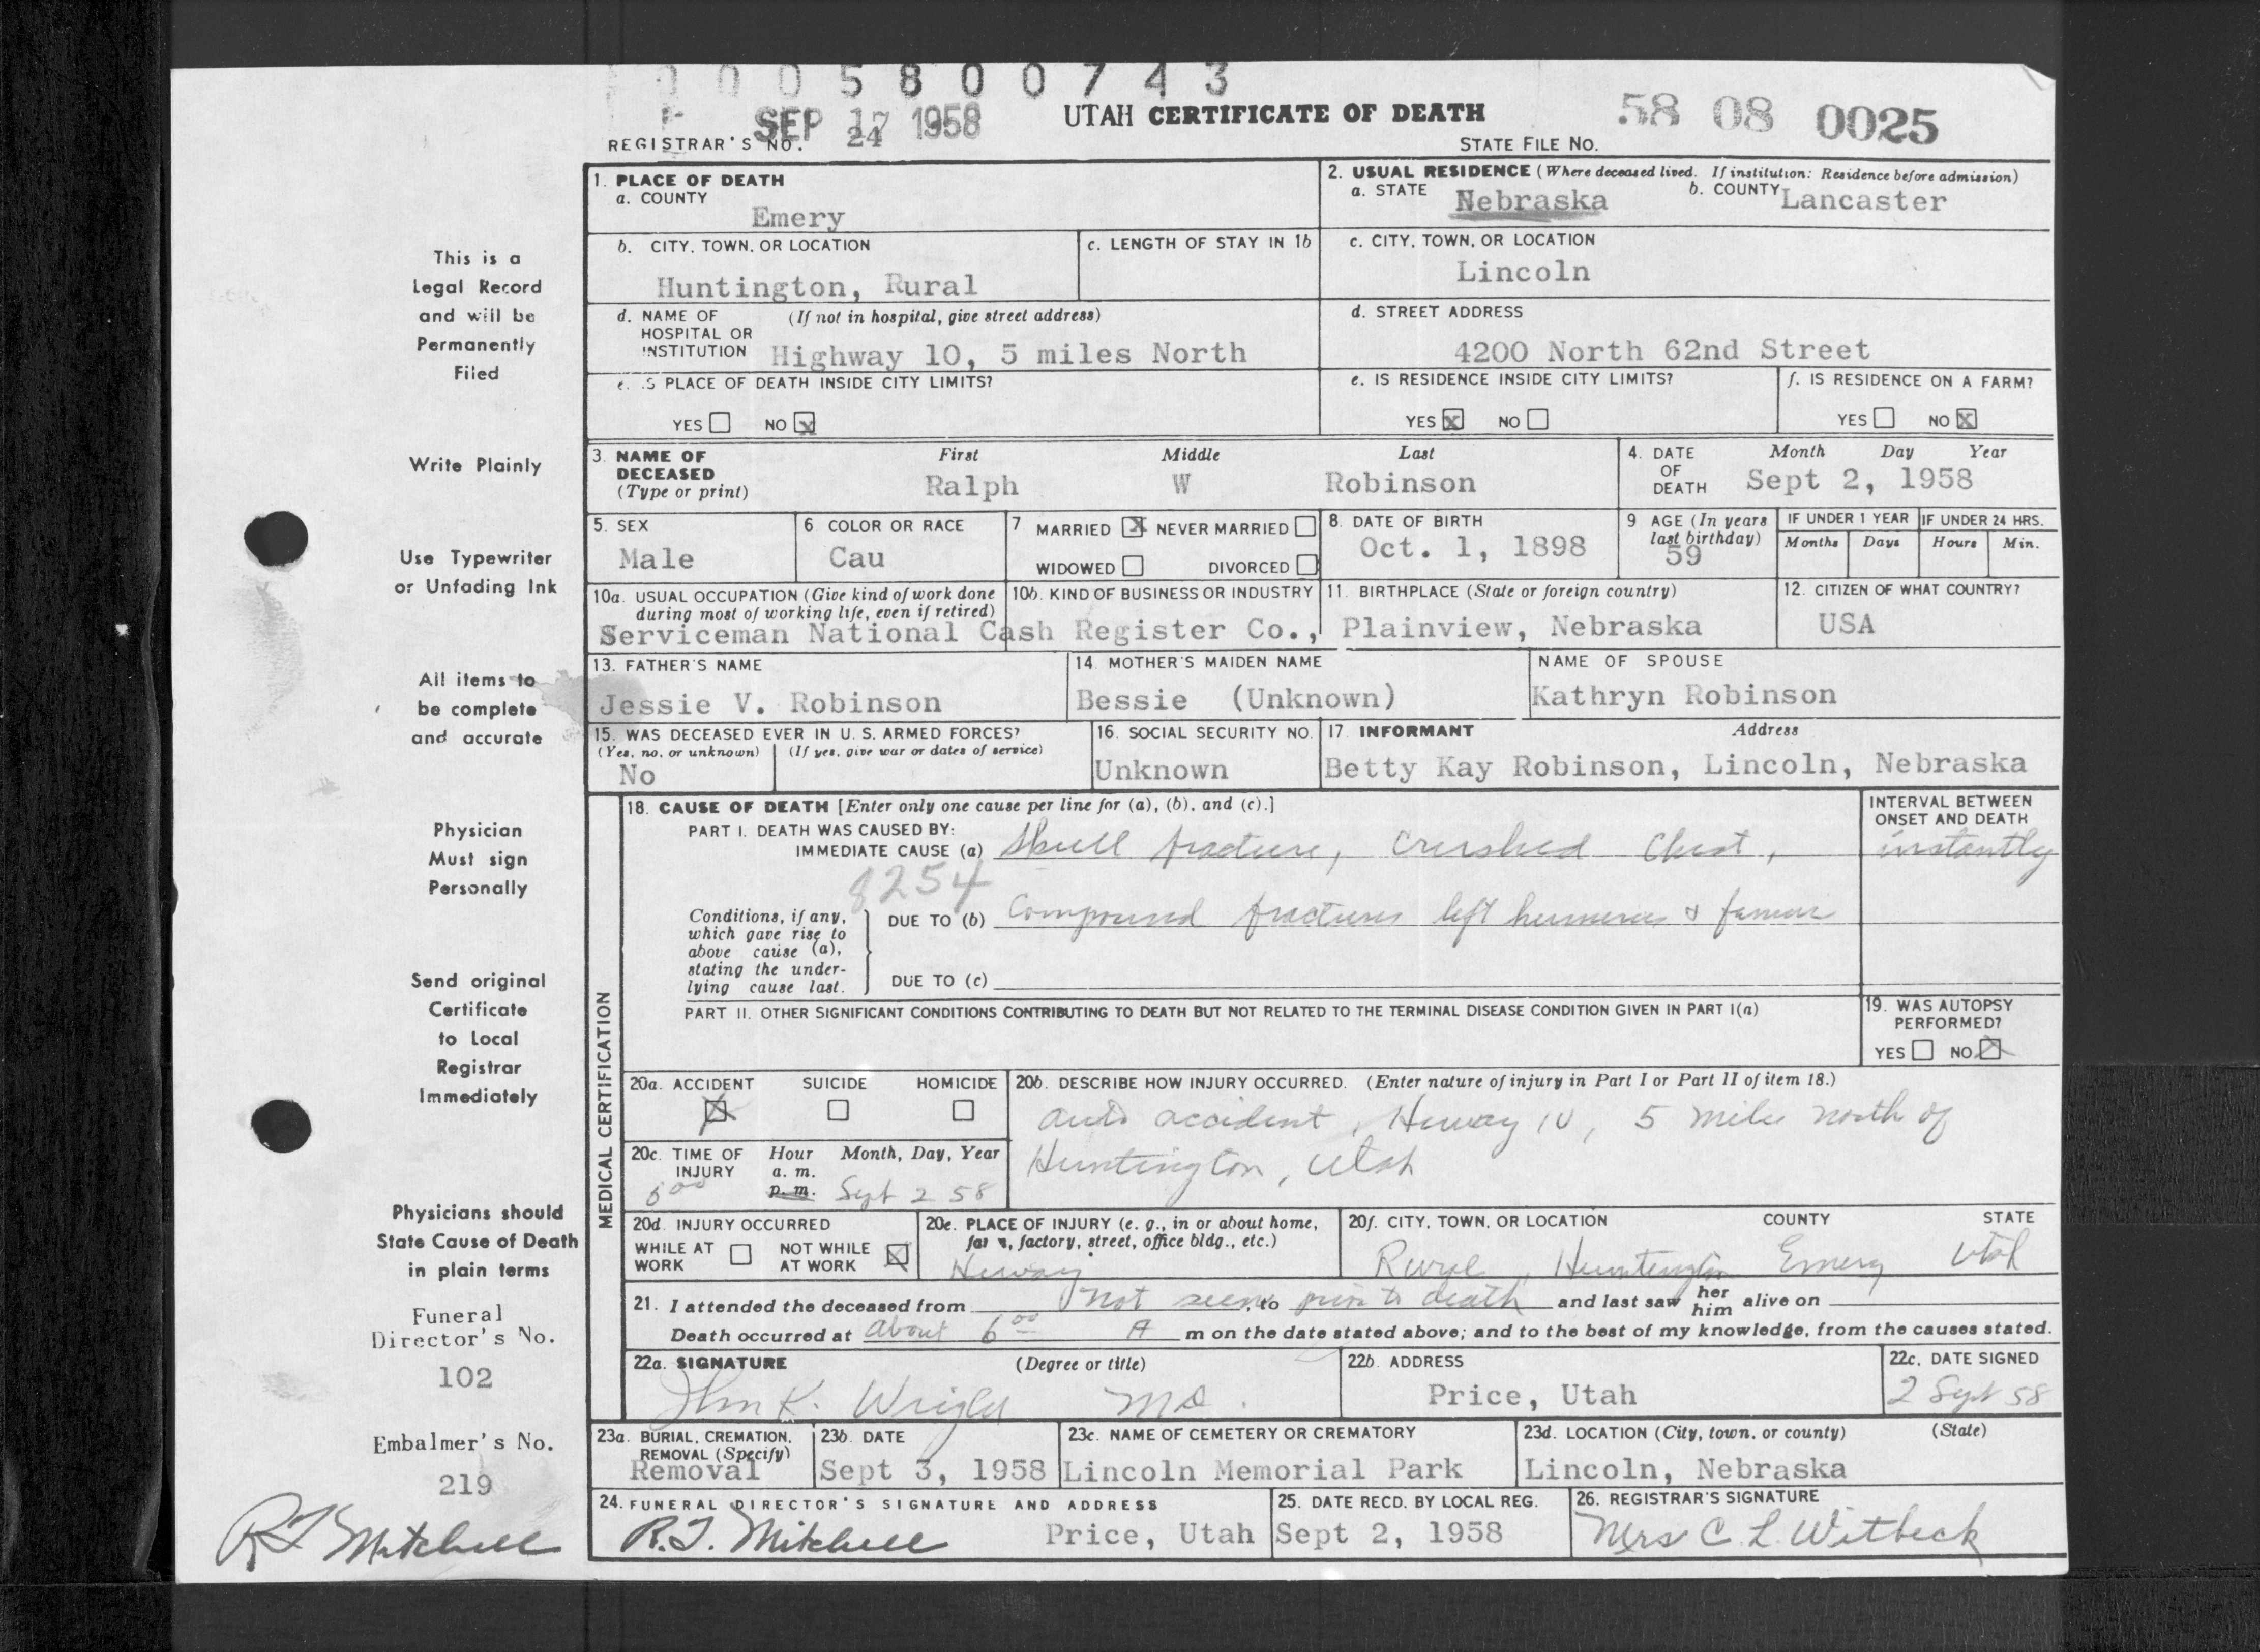 0 0 0 5 8 0 0 7 4 3
SEP 17 1958
UTAH CERTIFICATE OF DEATH
58 08 0025
REGISTRAR'S NO. 24
STATE FILE NO.
This is a
Legal Record
and will be
Permanently
Filed
Write Plainly
Use Typewriter
or Unfading Ink
All items to
be complete
and accurate
Physician
Must sign
Personally
Send original
Certificate
to Local
Registrar
Immediately
Physicians should
State Cause of Death
in plain terms
Funeral
Director's No.
102
Embalmer's No.
219
R T Mitchell
1. PLACE OF DEATH
a. COUNTY
Emery
2. USUAL RESIDENCE (Where deceased lived. If institution: Residence before admission)
a. STATE Nebraska b. COUNTY Lancaster
b. CITY, TOWN, OR LOCATION
Huntington, Rural
c. LENGTH OF STAY IN 1b
c. CITY, TOWN, OR LOCATION
Lincoln
d. NAME OF (If not in hospital, give street address)
HOSPITAL OR
INSTITUTION Highway 10, 5 miles North
d. STREET ADDRESS
4200 North 62nd Street
e. IS PLACE OF DEATH INSIDE CITY LIMITS?
YES NO X
e. IS RESIDENCE INSIDE CITY LIMITS?
YES X NO
f. IS RESIDENCE ON A FARM?
YES NO X
3. NAME OF First Middle Last
DECEASED
(Type or print) Ralph W Robinson
4. DATE Month Day Year
OF
DEATH Sept 2, 1958
5. SEX
Male
6 COLOR OR RACE
Cau
7 MARRIED X NEVER MARRIED
WIDOWED DIVORCED
8. DATE OF BIRTH
Oct. 1, 1898
9 AGE (In years
last birthday)
59
IF UNDER 1 YEAR IF UNDER 24 HRS.
Months Days Hours Min.
10a. USUAL OCCUPATION (Give kind of work done
during most of working life, even if retired)
10b. KIND OF BUSINESS OR INDUSTRY
Serviceman National Cash Register Co.,
11. BIRTHPLACE (State or foreign country)
Plainview, Nebraska
12. CITIZEN OF WHAT COUNTRY?
USA
13. FATHER'S NAME
Jessie V. Robinson
14. MOTHER'S MAIDEN NAME
Bessie (Unknown)
NAME OF SPOUSE
Kathryn Robinson
15. WAS DECEASED EVER IN U. S. ARMED FORCES?
(Yes, no, or unknown) (If yes, give war or dates of service)
No
16. SOCIAL SECURITY NO.
Unknown
17. INFORMANT Address
Betty Kay Robinson, Lincoln, Nebraska
MEDICAL CERTIFICATION
18. CAUSE OF DEATH [Enter only one cause per line for (a), (b), and (c).]
PART I. DEATH WAS CAUSED BY:
IMMEDIATE CAUSE (a) Skull fracture, Crushed Chest,
INTERVAL BETWEEN
ONSET AND DEATH
instantly
8254
Conditions, if any,
which gave rise to
above cause (a),
stating the under-
lying cause last.
DUE TO (b) Compound fractures left humerus & famur
DUE TO (c)
PART II. OTHER SIGNIFICANT CONDITIONS CONTRIBUTING TO DEATH BUT NOT RELATED TO THE TERMINAL DISEASE CONDITION GIVEN IN PART I(a)
19. WAS AUTOPSY
PERFORMED?
YES NO X
20a. ACCIDENT SUICIDE HOMICIDE
X
20b. DESCRIBE HOW INJURY OCCURRED. (Enter nature of injury in Part I or Part II of item 18.)
auto accident, Hiway 10, 5 mile north of
Huntington, Utah
20c. TIME OF Hour Month, Day, Year
INJURY a. m.
6 00 p. m. Sept 2 58
20d. INJURY OCCURRED
WHILE AT WORK NOT WHILE AT WORK X
20e. PLACE OF INJURY (e. g., in or about home,
farm, factory, street, office bldg., etc.)
Hiway
20f. CITY, TOWN, OR LOCATION COUNTY STATE
Rural, Huntington Emery Utah
21. I attended the deceased from not seen, to prior to death and last saw her him alive on
Death occurred at about 6 00 A m on the date stated above; and to the best of my knowledge, from the causes stated.
22a. SIGNATURE (Degree or title)
John K. Wright MD.
22b. ADDRESS
Price, Utah
22c. DATE SIGNED
2 Sept 58
23a. BURIAL, CREMATION,
REMOVAL (Specify)
Removal
23b. DATE
Sept 3, 1958
23c. NAME OF CEMETERY OR CREMATORY
Lincoln Memorial Park
23d. LOCATION (City, town, or county) (State)
Lincoln, Nebraska
24. FUNERAL DIRECTOR'S SIGNATURE AND ADDRESS
R. T. Mitchell Price, Utah
25. DATE RECD. BY LOCAL REG.
Sept 2, 1958
26. REGISTRAR'S SIGNATURE
Mrs C. L. Witbeck